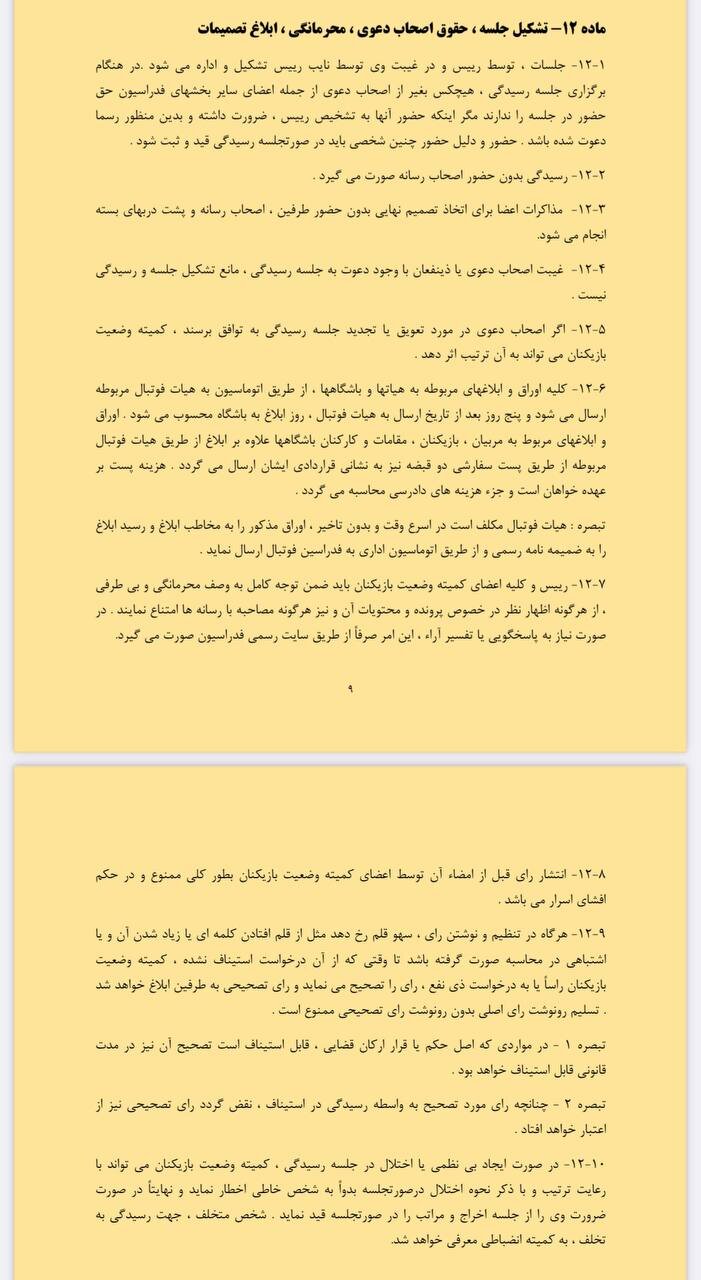 ماده ۱۲- تشکیل جلسه ، حقوق اصحاب دعوی ، محرمانگی ، ابلاغ تصمیمات
۱۲-۱- جلسات ، توسط رییس و در غیبت وی توسط نایب رییس تشکیل و اداره می شود .در هنگام
برگزاری جلسه رسیدگی ، هیچکس بغیر از اصحاب دعوی از جمله اعضای سایر بخشهای فدراسیون حق
حضور در جلسه را ندارند مگر اینکه حضور آنها به تشخیص رییس ، ضرورت داشته و بدین منظور رسما
دعوت شده باشد . حضور و دلیل حضور چنین شخصی باید در صورتجلسه رسیدگی قید و ثبت شود .
۱۲-۲- رسیدگی بدون حضور اصحاب رسانه صورت می گیرد .
۱۲-۳- مذاکرات اعضا برای اتخاذ تصمیم نهایی بدون حضور طرفین ، اصحاب رسانه و پشت دربهای بسته
انجام می شود.
۱۲-۴- غیبت اصحاب دعوی یا ذینفعان با وجود دعوت به جلسه رسیدگی ، مانع تشکیل جلسه و رسیدگی
نیست .
۱۲-۵- اگر اصحاب دعوی در مورد تعویق یا تجدید جلسه رسیدگی به توافق برسند ، کمیته وضعیت
بازیکنان می تواند به آن ترتیب اثر دهد .
۱۲-۶- کلیه اوراق و ابلاغهای مربوطه به هیاتها و باشگاهها ، از طریق اتوماسیون به هیات فوتبال مربوطه
ارسال می شود و پنج روز بعد از تاریخ ارسال به هیات فوتبال ، روز ابلاغ به باشگاه محسوب می شود . اوراق
و ابلاغهای مربوط به مربیان ، بازیکنان ، مقامات و کارکنان باشگاهها علاوه بر ابلاغ از طریق هیات فوتبال
مربوطه از طریق پست سفارشی دو قبضه نیز به نشانی قراردادی ایشان ارسال می گردد . هزینه پست بر
عهده خواهان است و جزء هزینه های دادرسی محاسبه می گردد .
تبصره : هیات فوتبال مکلف است در اسرع وقت و بدون تاخیر ، اوراق مذکور را به مخاطب ابلاغ و رسید ابلاغ
را به ضمیمه نامه رسمی و از طریق اتوماسیون اداری به فدراسین فوتبال ارسال نماید .
۱۲-۷- رییس و کلیه اعضای کمیته وضعیت بازیکنان باید ضمن توجه کامل به وصف محرمانگی و بی طرفی
، از هرگونه اظهار نظر در خصوص پرونده و محتویات آن و نیز هرگونه مصاحبه با رسانه ها امتناع نمایند . در
صورت نیاز به پاسخگویی یا تفسیر آراء ، این امر صرفاً از طریق سایت رسمی فدراسیون صورت می گیرد.
۹
۱۲-۸- انتشار رای قبل از امضاء آن توسط اعضای کمیته وضعیت بازیکنان بطور کلی ممنوع و در حکم
افشای اسرار می باشد .
۱۲-۹- هرگاه در تنظیم و نوشتن رای ، سهو قلم رخ دهد مثل از قلم افتادن کلمه ای یا زیاد شدن آن و یا
اشتباهی در محاسبه صورت گرفته باشد تا وقتی که از آن درخواست استیناف نشده ، کمیته وضعیت
بازیکنان راساً یا به درخواست ذی نفع ، رای را تصحیح می نماید و رای تصحیحی به طرفین ابلاغ خواهد شد
. تسلیم رونوشت رای اصلی بدون رونوشت رای تصحیحی ممنوع است .
تبصره ۱ - در مواردی که اصل حکم یا قرار ارکان قضایی ، قابل استیناف است تصحیح آن نیز در مدت
قانونی قابل استیناف خواهد بود .
تبصره ۲ - چنانچه رای مورد تصحیح به واسطه رسیدگی در استیناف ، نقض گردد رای تصحیحی نیز از
اعتبار خواهد افتاد .
۱۲-۱۰- در صورت ایجاد بی نظمی یا اختلال در جلسه رسیدگی ، کمیته وضعیت بازیکنان می تواند با
رعایت ترتیب و با ذکر نحوه اختلال درصورتجلسه بدواً به شخص خاطی اخطار نماید و نهایتاً در صورت
ضرورت وی را از جلسه اخراج و مراتب را در صورتجلسه قید نماید . شخص متخلف ، جهت رسیدگی به
تخلف ، به کمیته انضباطی معرفی خواهد شد.